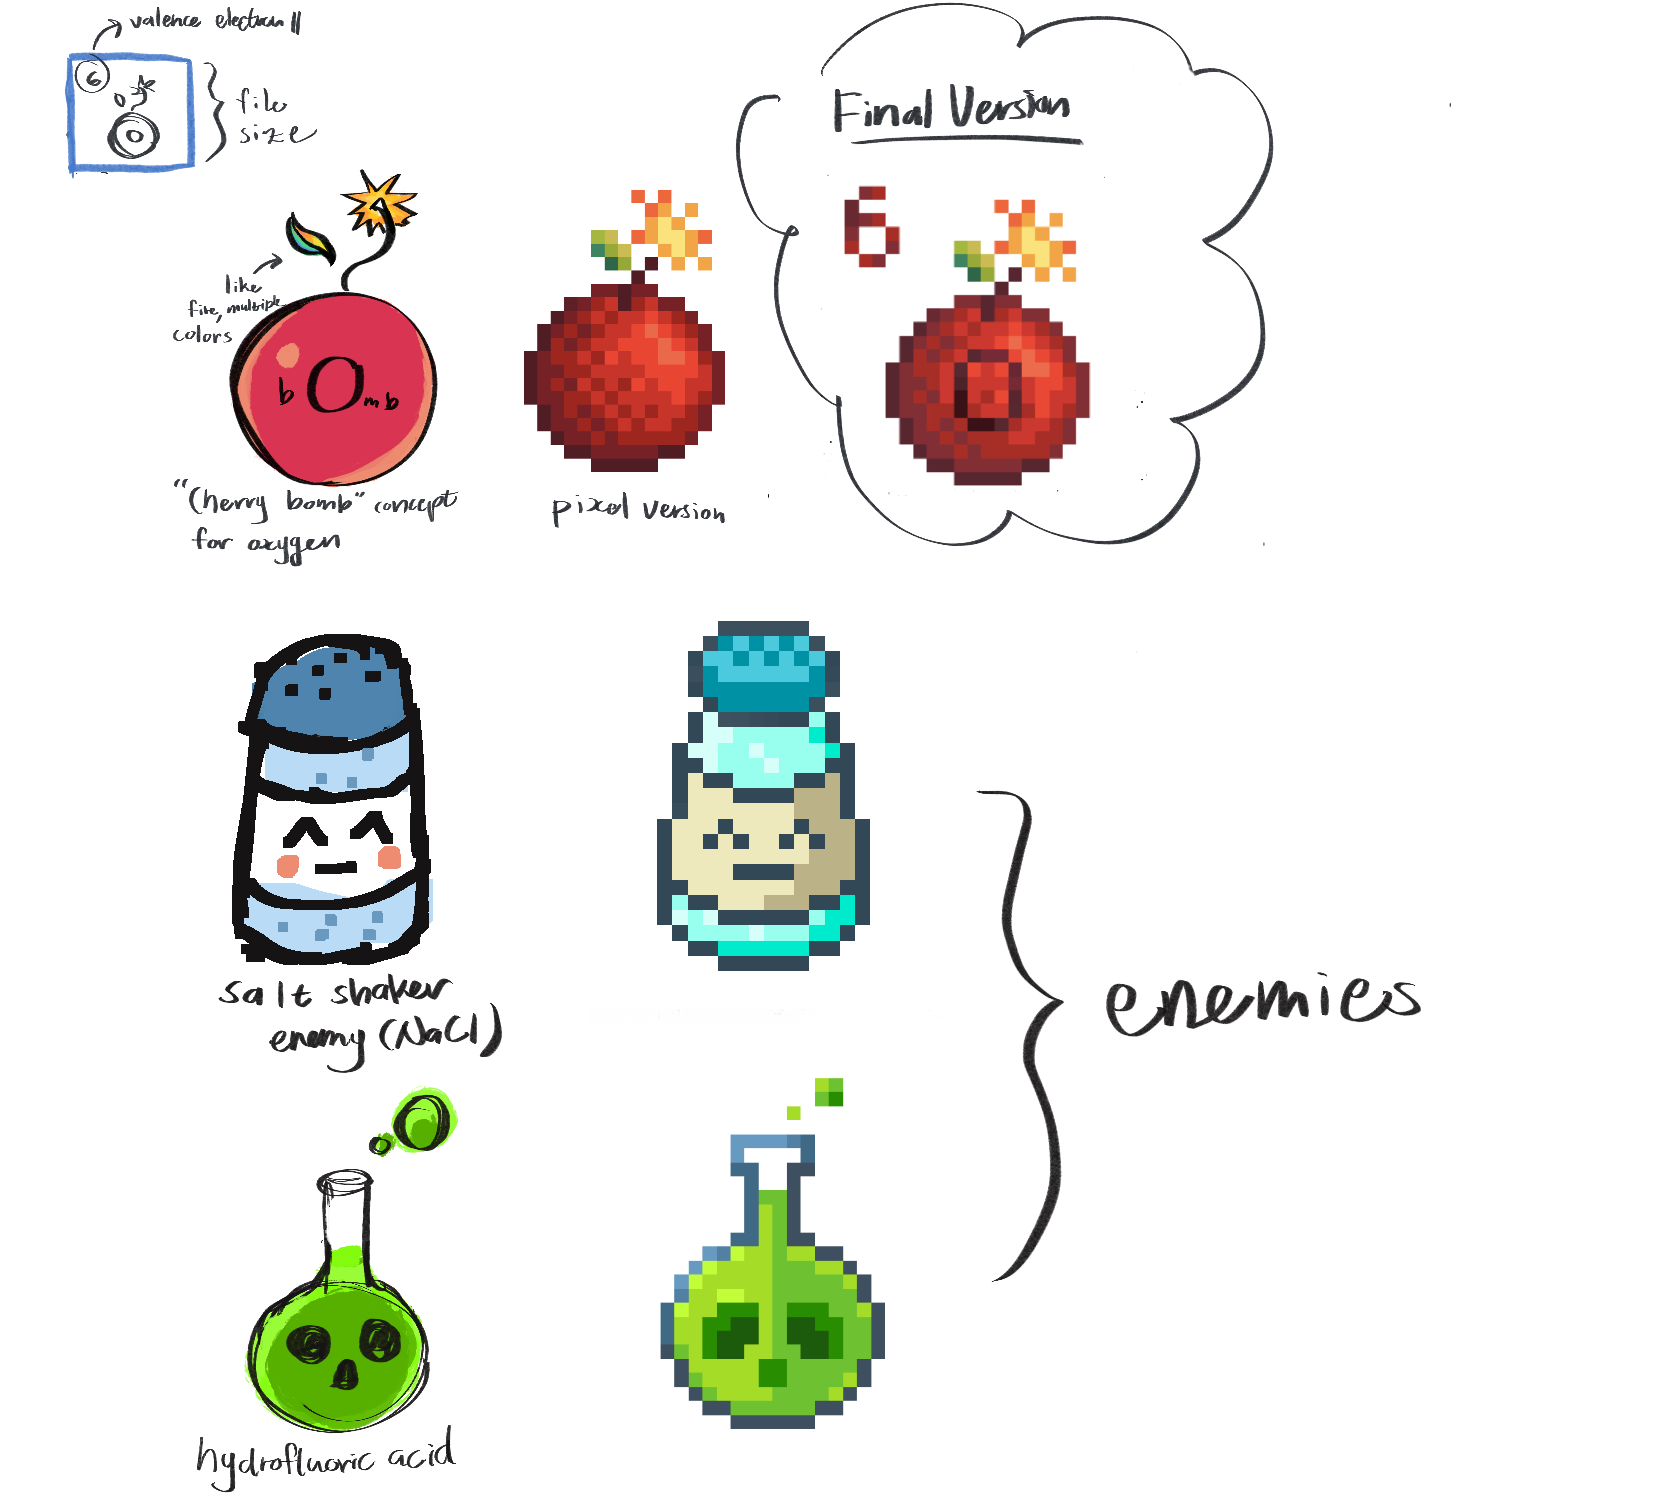 valence electron ||
6
O
file
size
Final Version
6
O
like
fire, multiple
colors
b O mb
"Cherry bomb" concept
for oxygen
pixel version
salt shaker
enemy (NaCl)
enemies
hydrofluoric acid